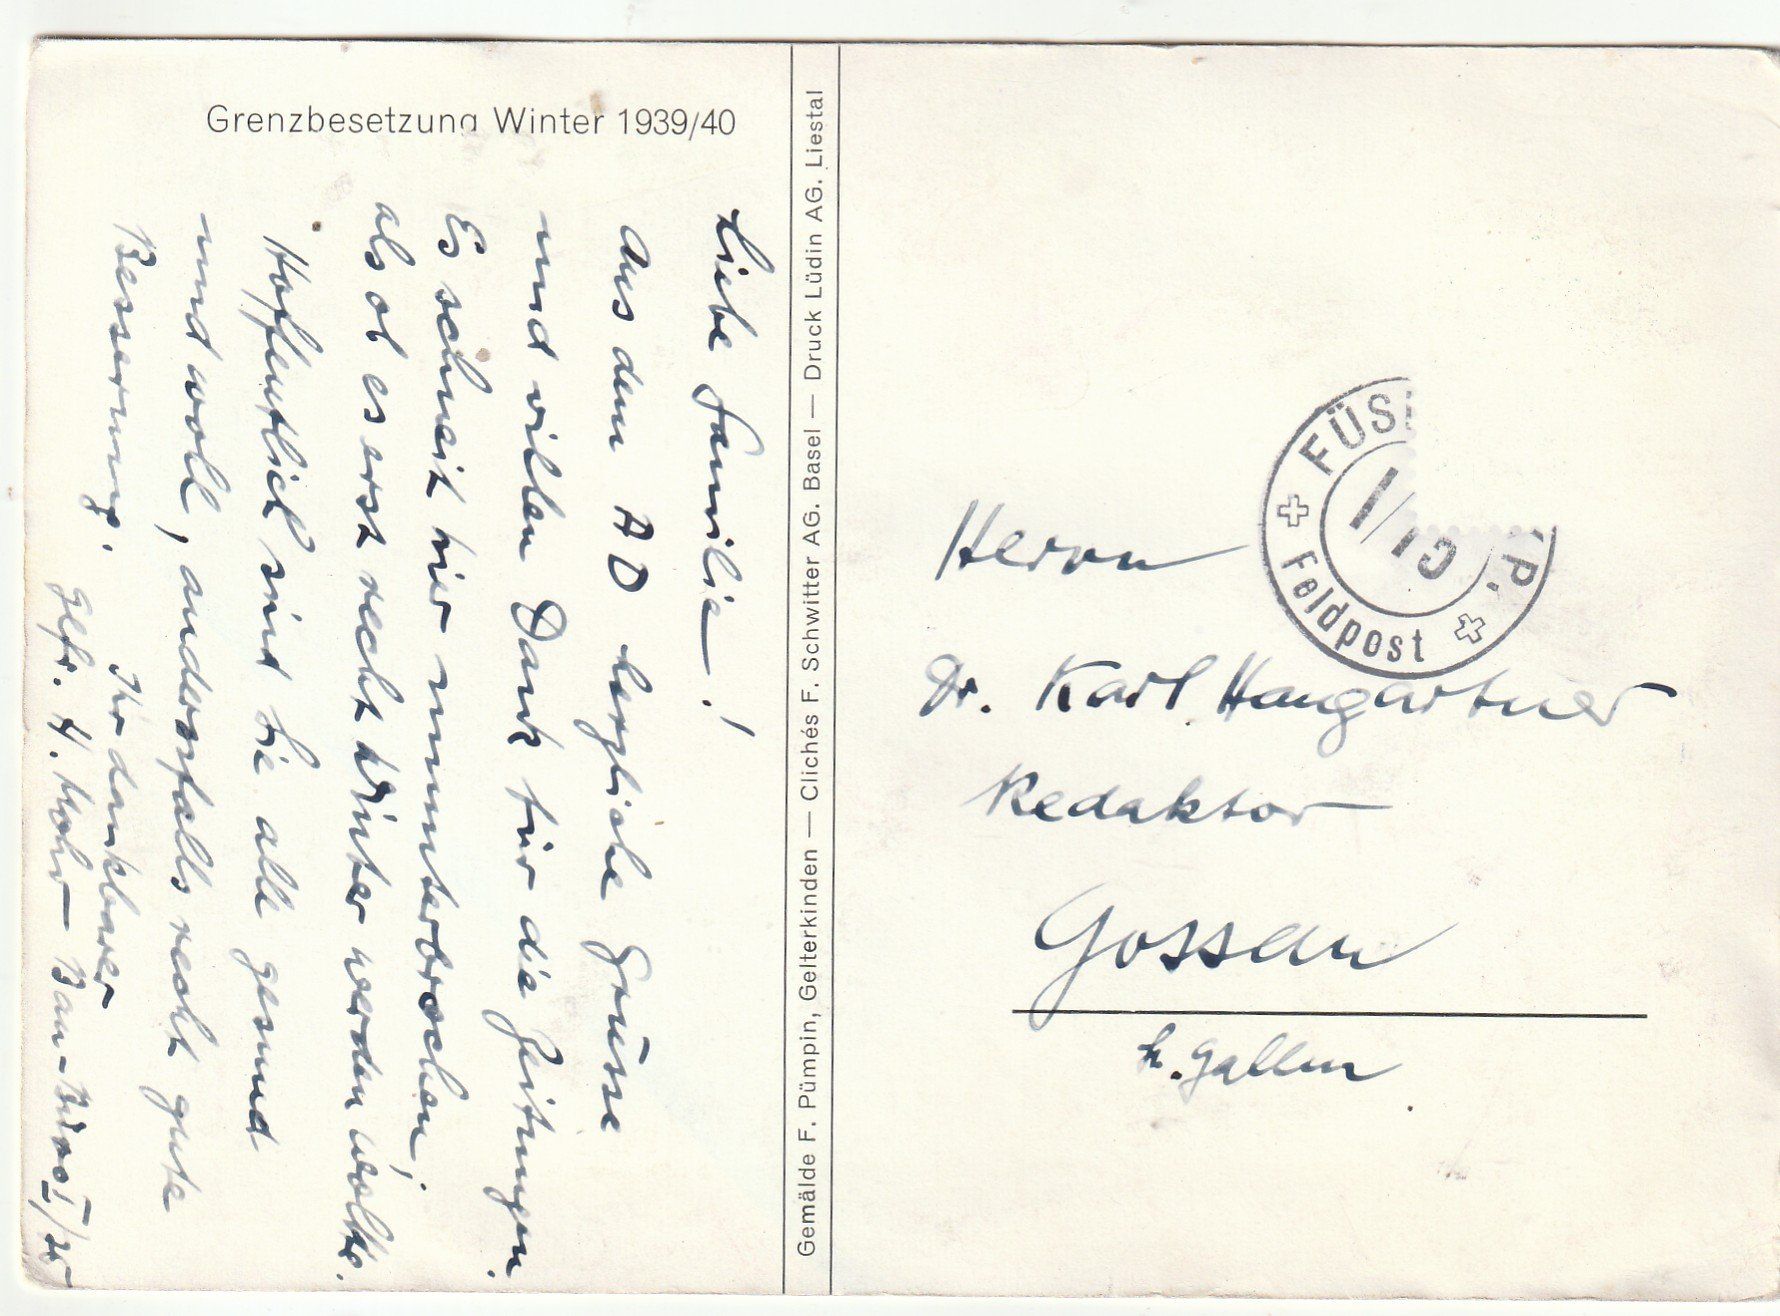 Grenzbesetzung Winter 1939/40
Liebe Familie!
Aus dem AD herzliche Grüsse
und vielen Dank für die Zeitungen.
Es schneit hier ununterbrochen,
als ob es erst recht Winter werden wollte.
Hoffentlich sind Sie alle gesund
und wohl, andernfalls recht gute
Besserung.
Ihr dankbarer
Gefr. H. Mohr Bau-Büro I/25
Gemälde F. Pümpin, Gelterkinden — Clichés F. Schwitter AG. Basel — Druck Lüdin AG. Liestal
FÜS.
P.
I/
Feldpost
Herrn
Dr. Karl Hangartner
Redaktor
Gossau
St. Gallen